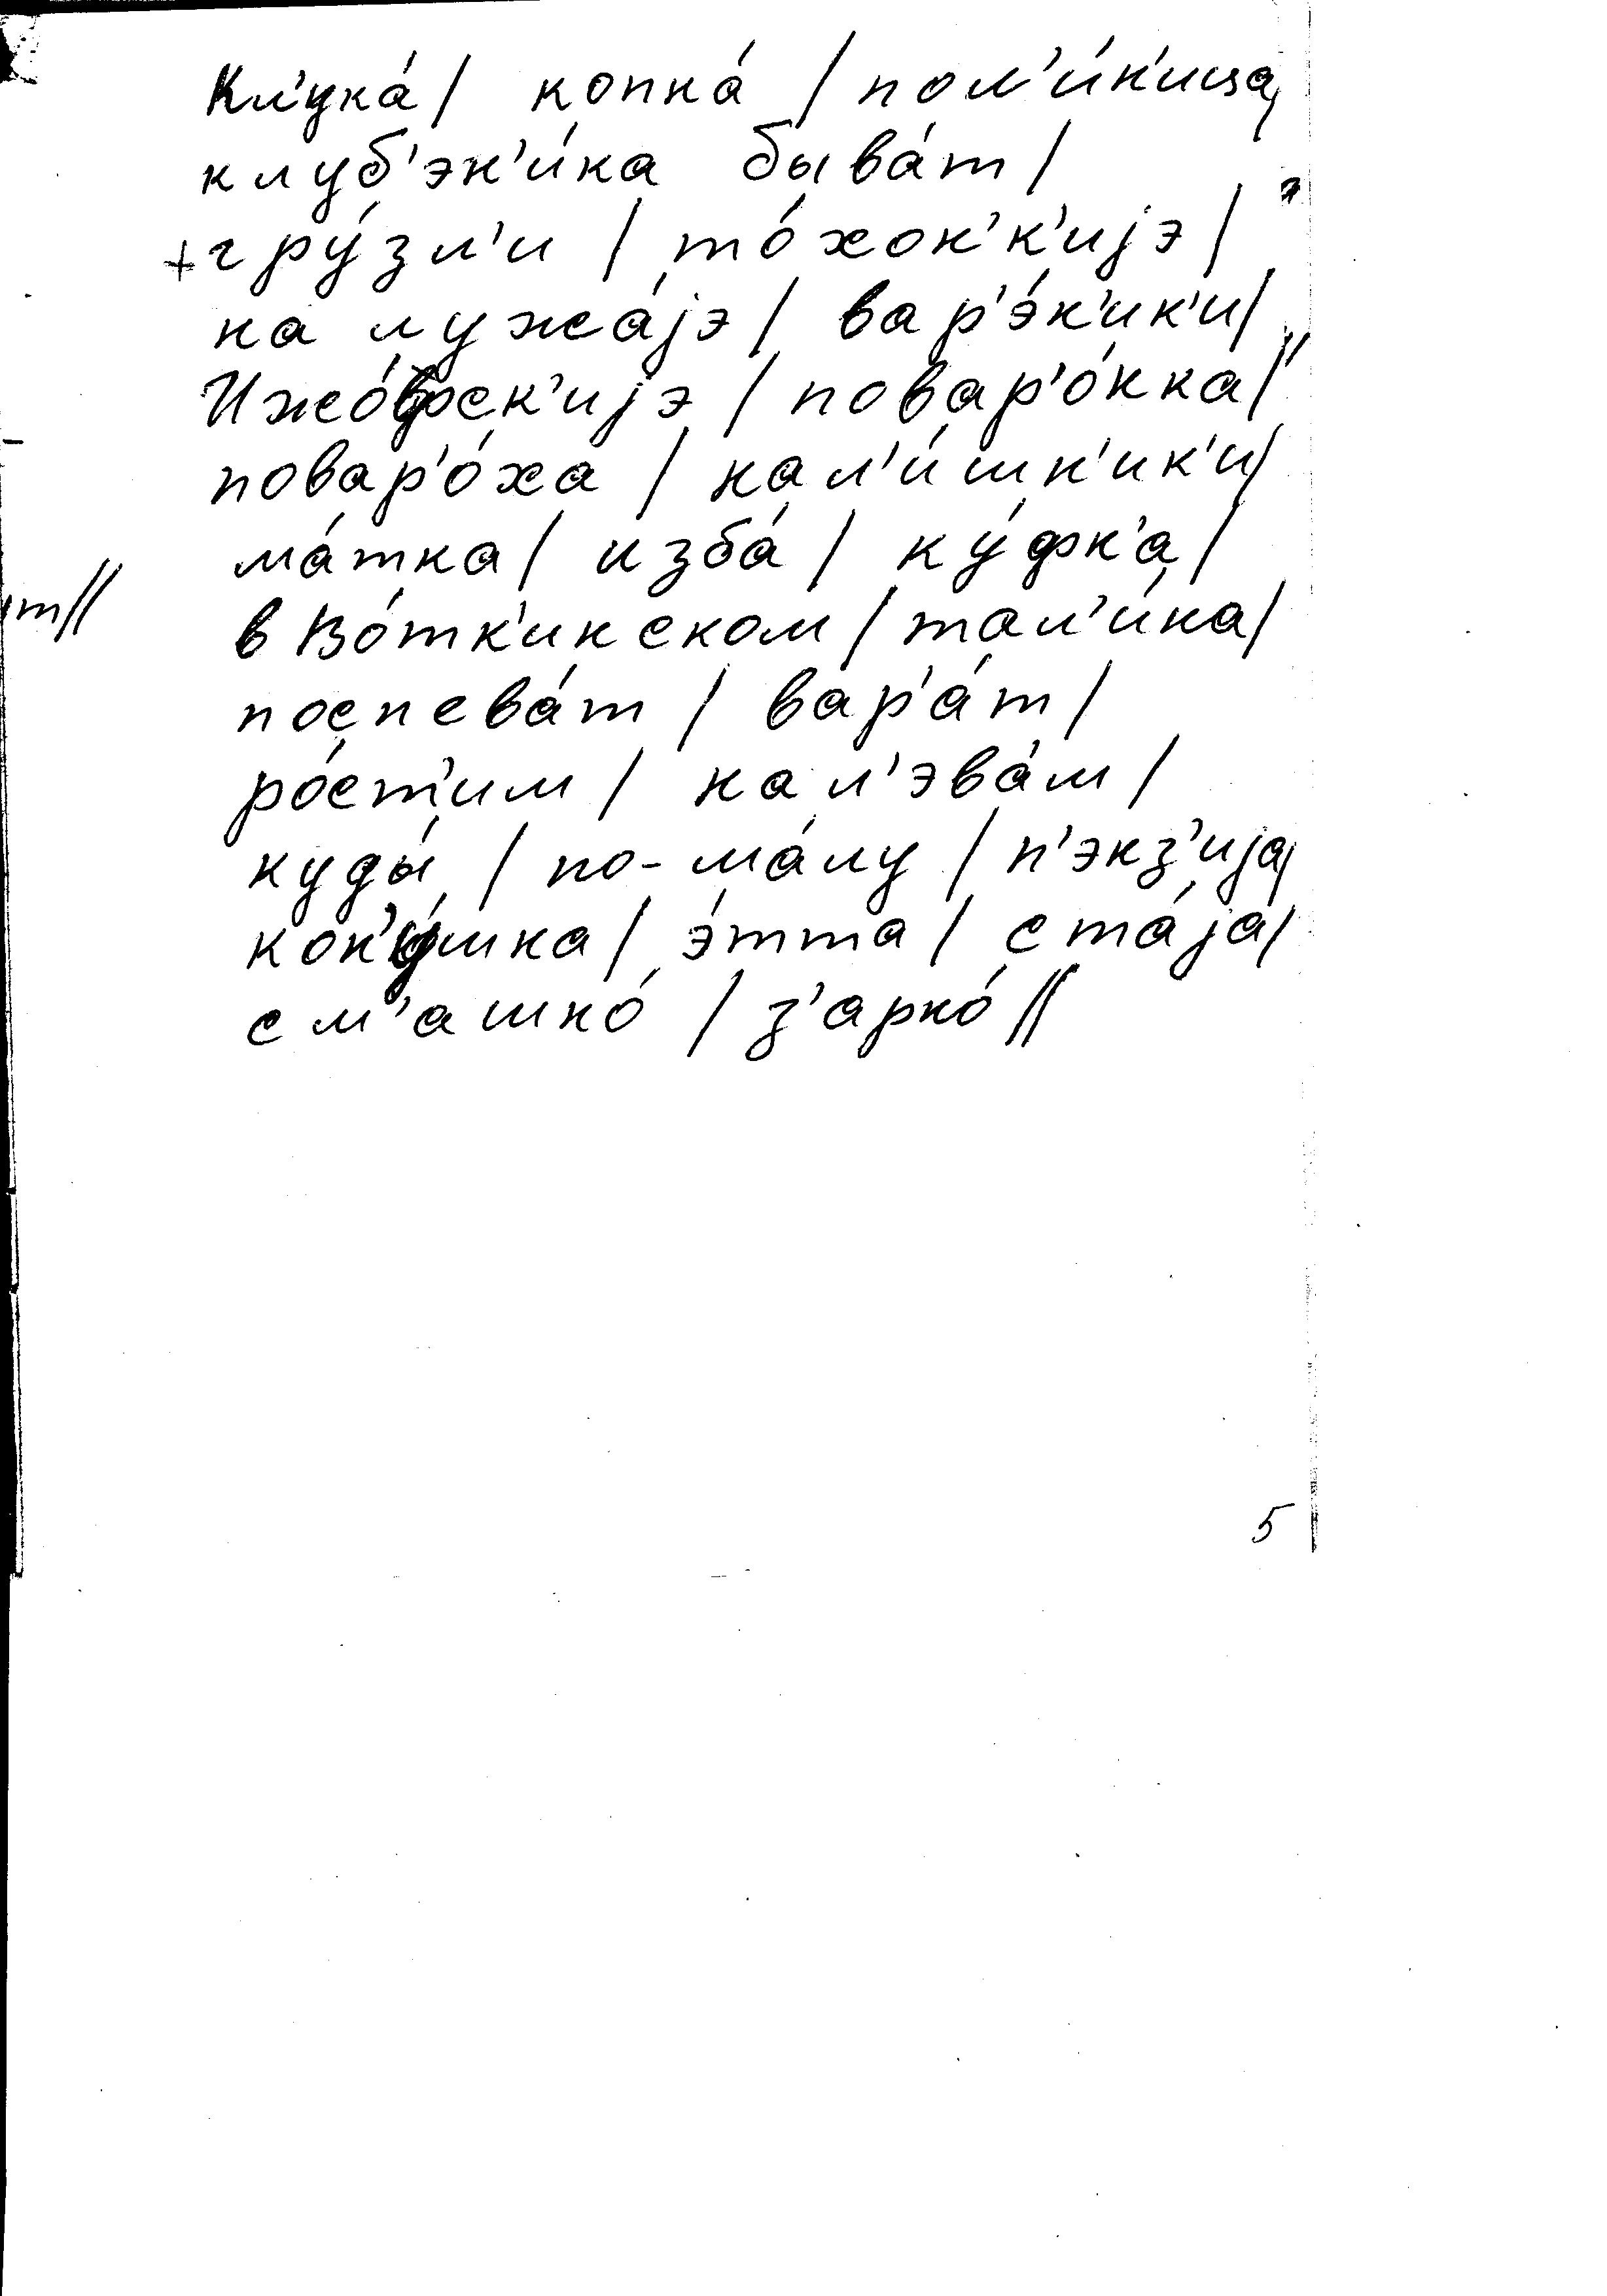 Кл'ука́ | копна́ | пол'и́н'ица|
клуб'эн'и́ка быва́т |
+ гру́зл'и | то́хон'к'иjэ |
на лужа́jэ | вар'э́н'ик'и|
Ижо́фск'иjэ | повар'о́нка|
повар'о́ха | нал'и́шн'ик'и|
ма́тка | изба́ | ку́фн'а |
т||
в Во́тк'инском | тал'и́на|
поспева́т | вар'а́т |
ро́ст'им | нал'эва́м |
куды́ | по-ма́лу | п'энз'иjа|
кон'у́шна | э́тта | ста́jа|
см'ашно́ | з'арно́ ||
5